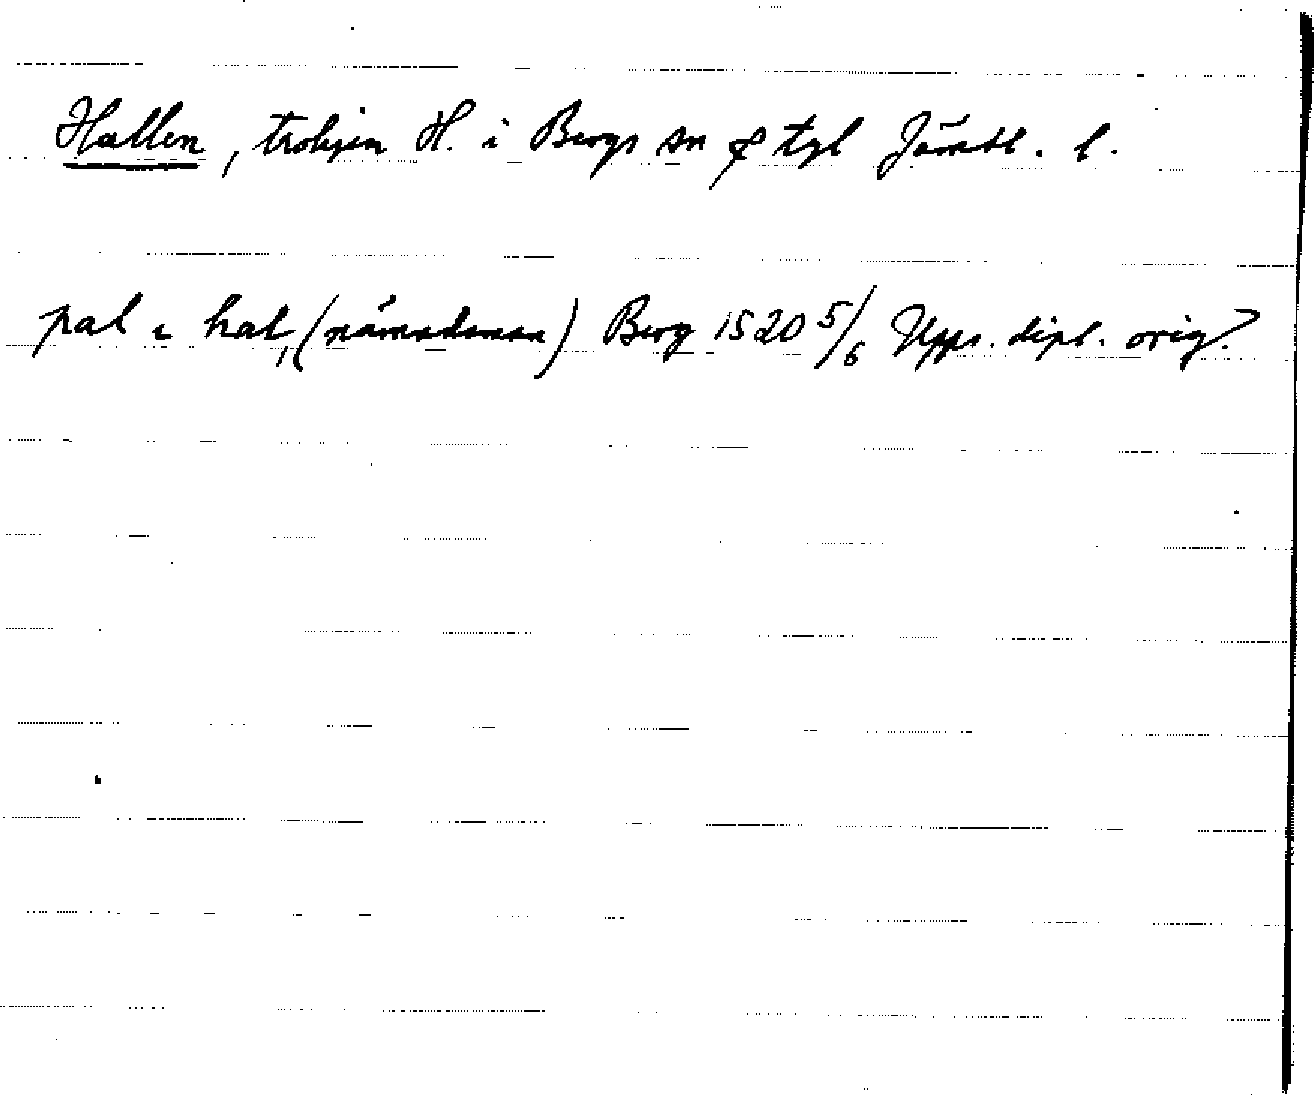 Hallen, troligen H. i Bergs sn & tgl Jämtl. l.
pal i hal, (nämndeman) Berg 1520 5/6 Upps. dipl. orig?